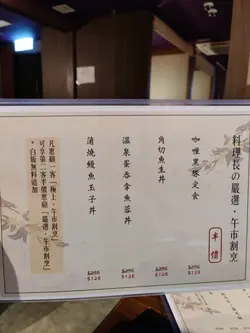 料理長の嚴選・午市割烹
半價
咖喱黑豚定食
$296
$128
角切魚生丼
$296
$128
溫泉蛋吞拿魚蓉丼
$296
$128
蒲燒鰻魚玉子丼
$296
$128
凡惠顧一客「極上・午市割烹」
可享第二客半價惠顧「嚴選・午市割烹」
*白飯無料追加